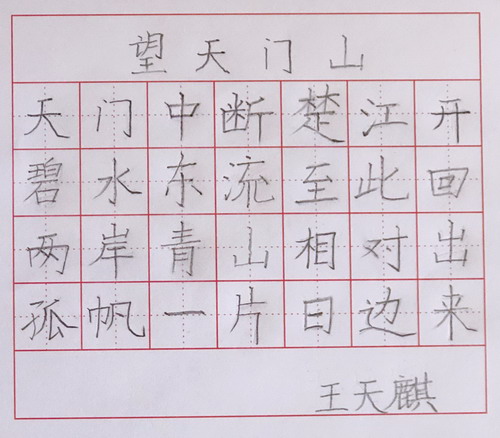 望天门山
天门中断楚江开
碧水东流至此回
两岸青山相对出
孤帆一片日边来
王天麒